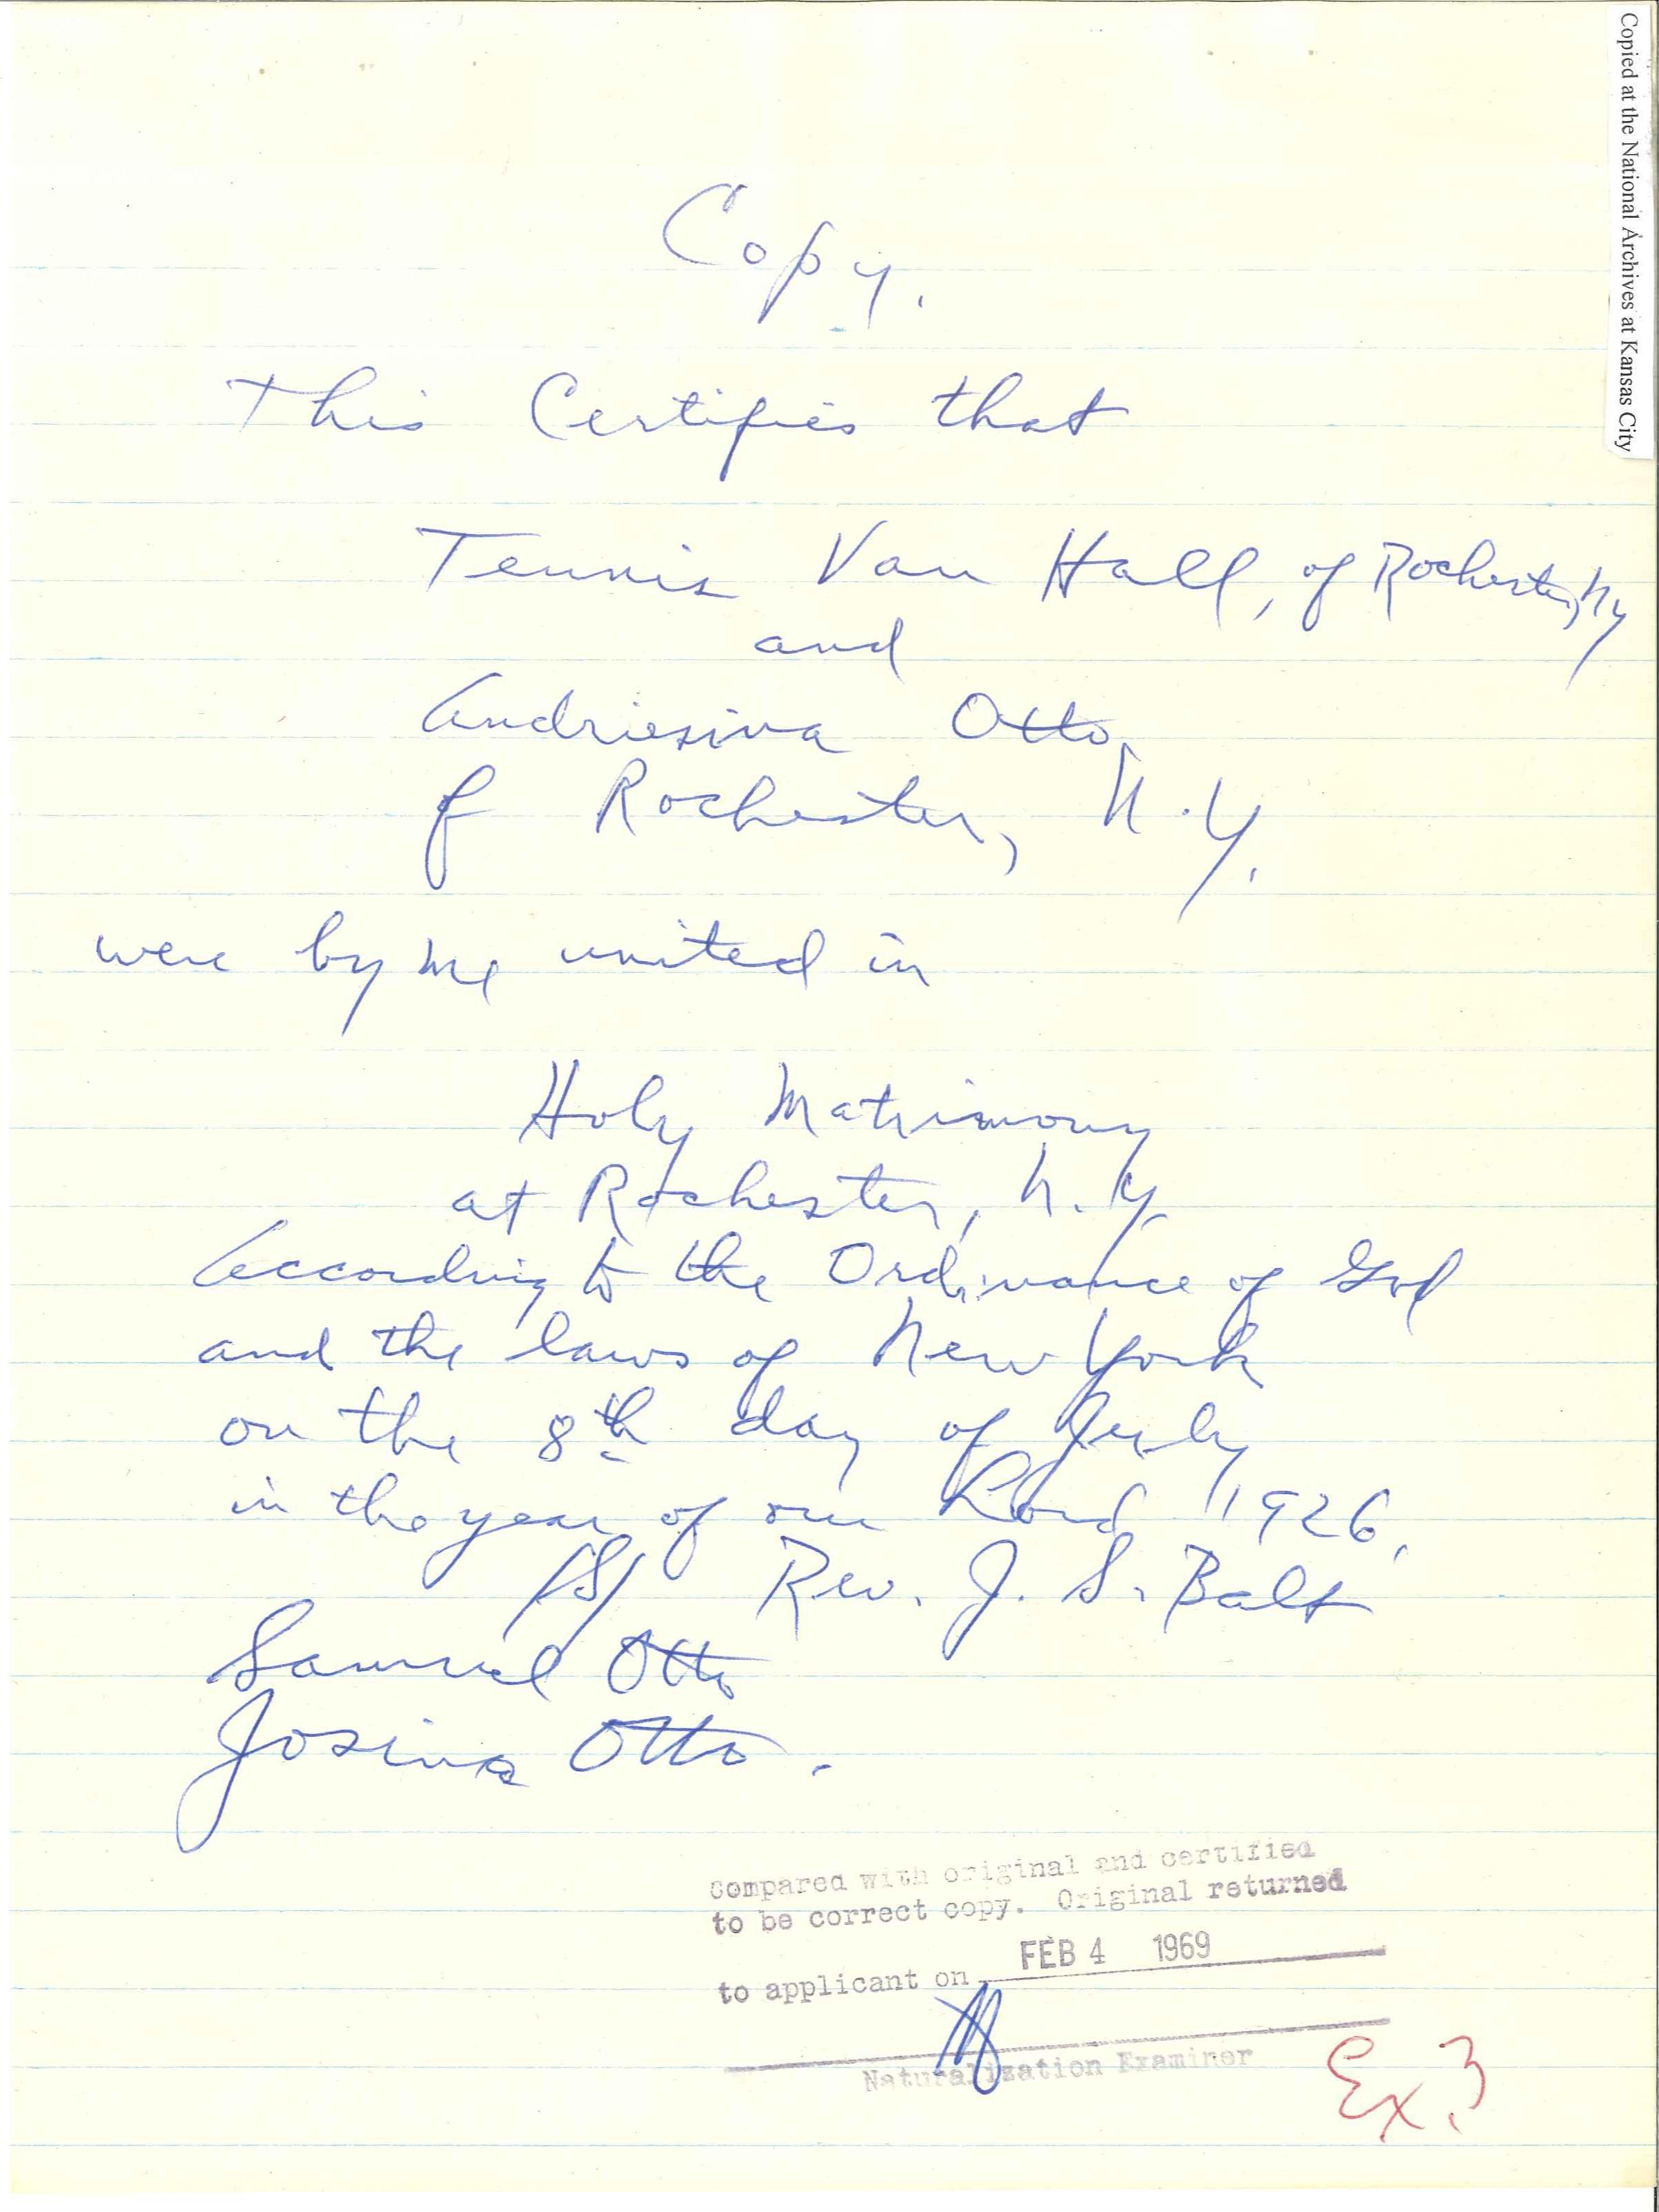 Copied at the National Archives at Kansas City
Copy.
This Certifies that
Tennis Van Hall, of Rochester, Ny
and
Andriesina Otto,
of Rochester, N.Y.
were by me united in
Holy Matrimony
at Rochester, N.Y.
According to the Ordinance of God
and the laws of New York
on the 8th day of July
in the year of our Lord 1926,
/S/ Rev. J. S. Balt
Samuel Otto
Josina Otto.
Compared with original and certified
to be correct copy. Original returned
to applicant on FEB 4 1969
Naturalization Examiner
Ex. 3